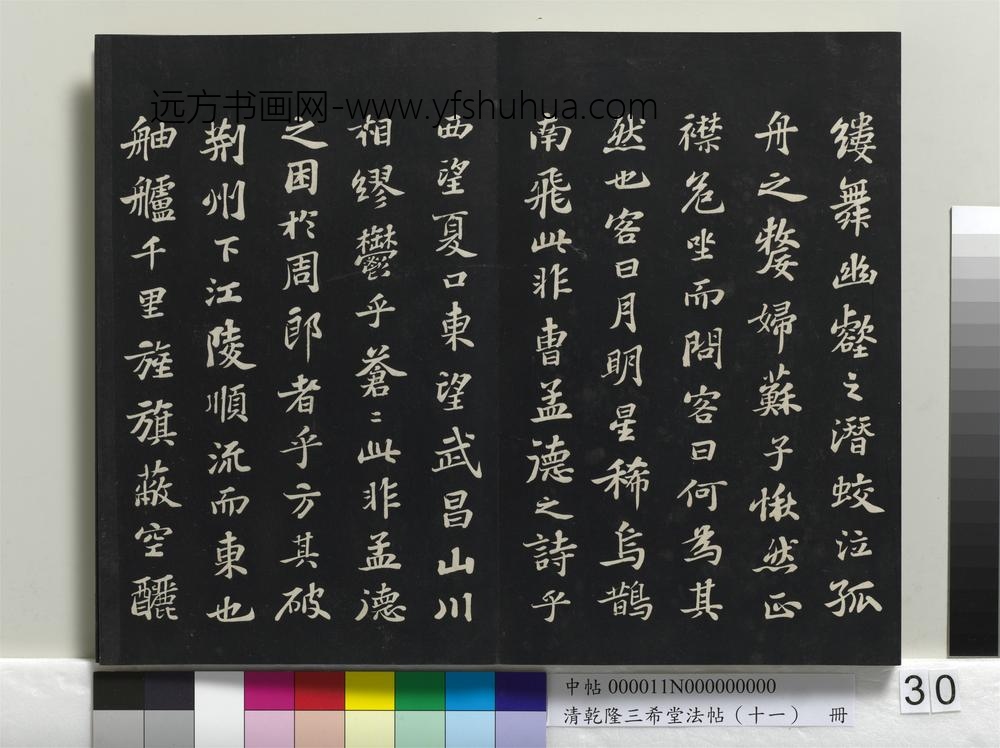 远方书画网-www.yfshuhua.com
縷舞幽壑之潛蛟泣孤
舟之嫠婦蘇子愀然正
襟危坐而問客曰何為其
然也客曰月明星稀烏鵲
南飛此非曹孟德之詩乎
西望夏口東望武昌山川
相繆鬱乎蒼〻此非孟德
之困於周郎者乎方其破
荆州下江陵順流而東也
舳艫千里旌旗蔽空釃
中帖 000011N000000000
清乾隆三希堂法帖（十一） 冊
30